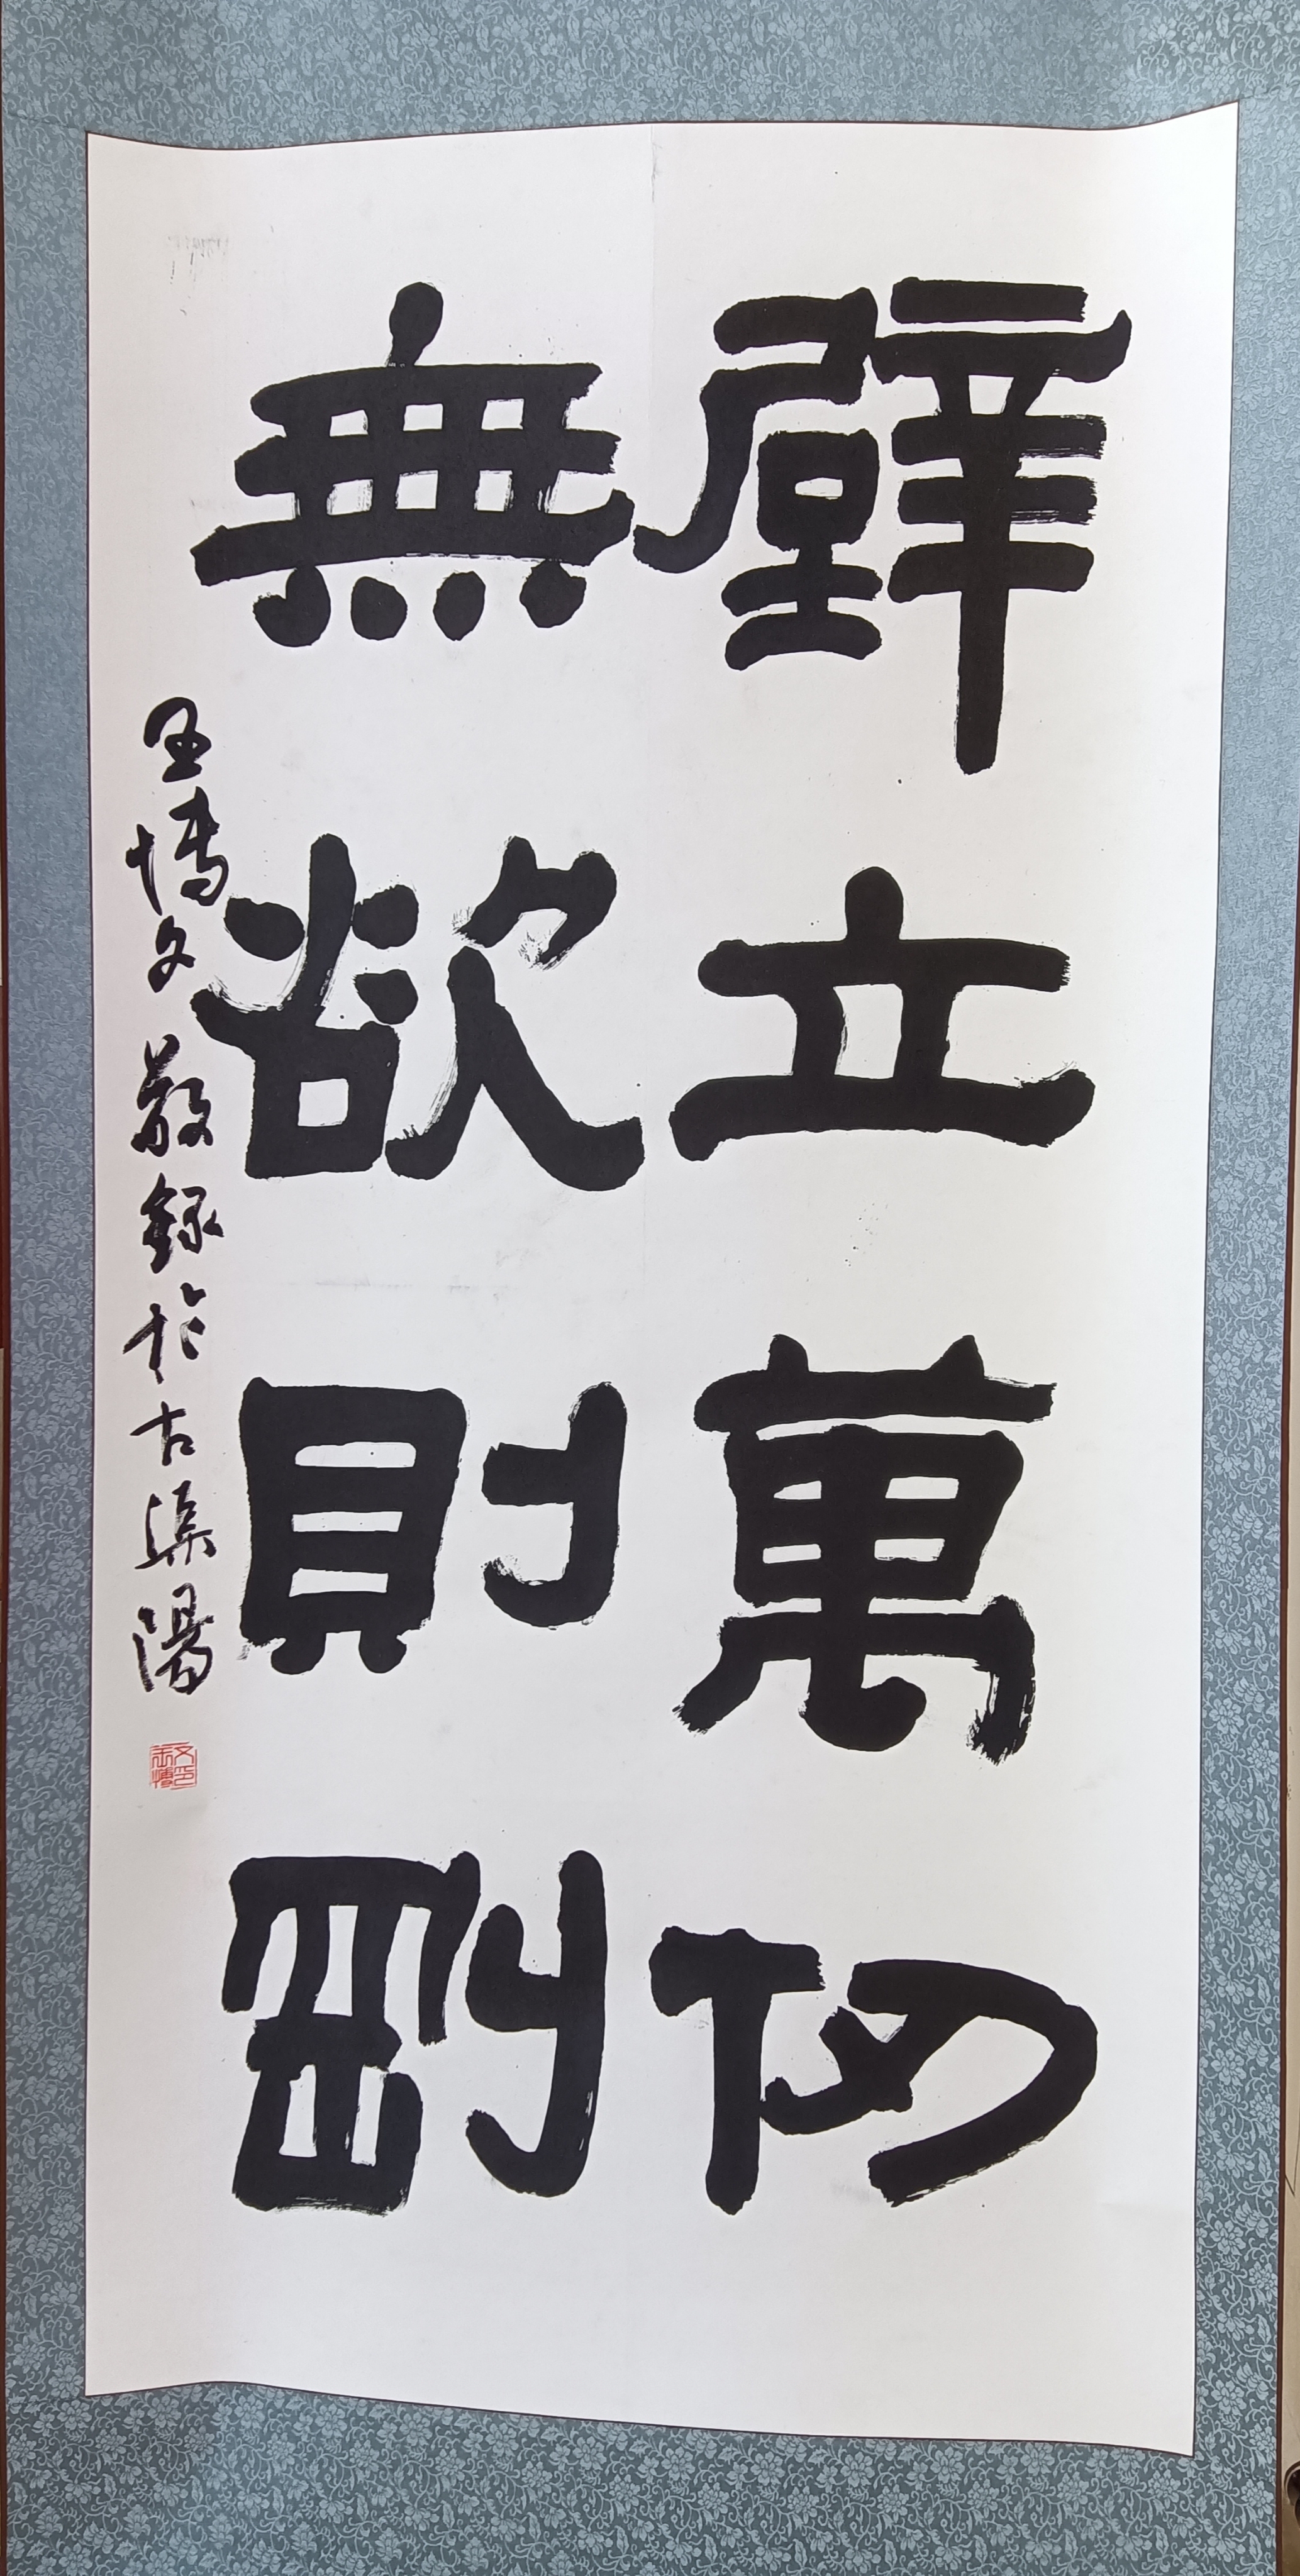 壁立萬仞
無欲則剛
王博文敬錄於古渠陽
王博文印